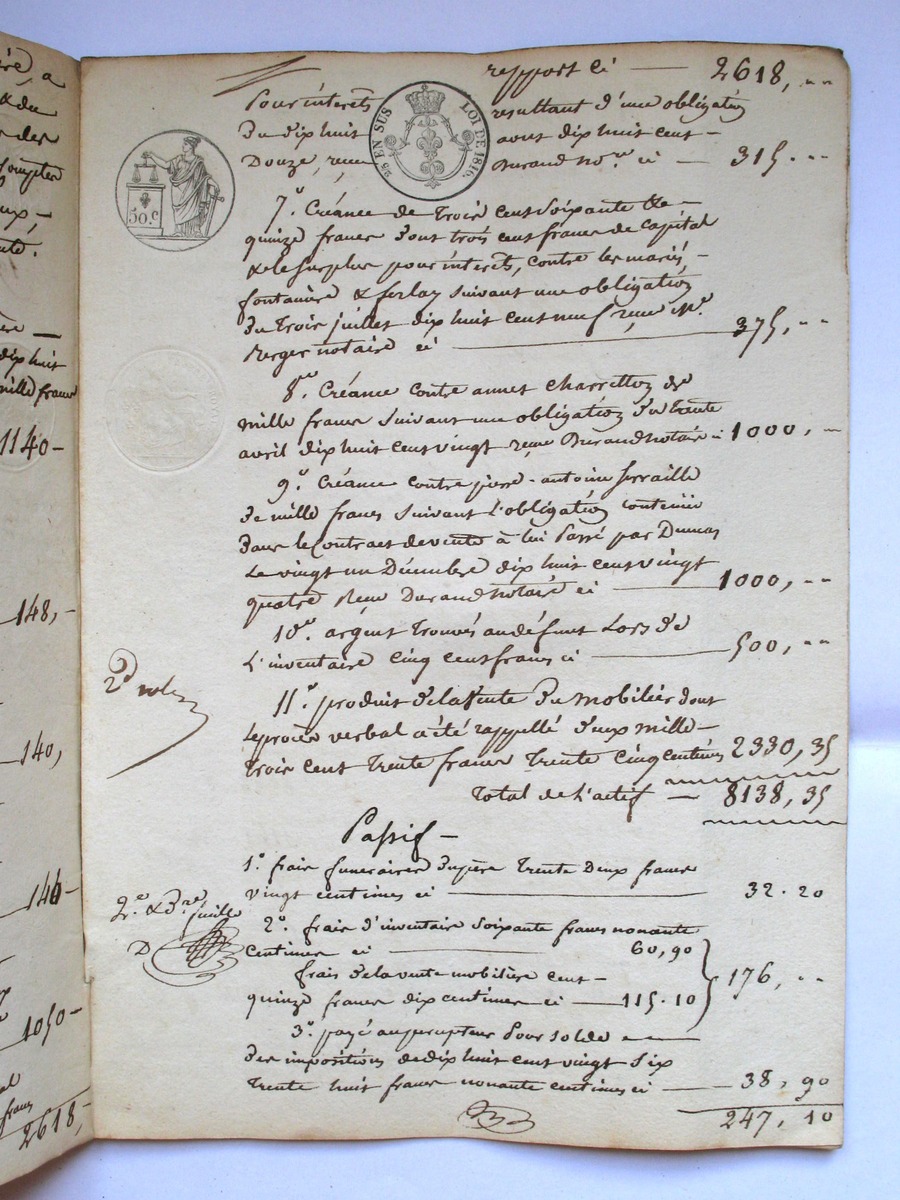 rapport ci — 2618, --
Pour interets resultant d'une obligation
du dix huit aout dix huit cent -
Douze, recu Durand nore ci — 315. --
25 EN SUS LOI DE 1816.
50 c
7o. Créance de trois cent soixante &
quinze francs dont trois cent francs de capital
& le surplus pour interets, contre les mariés -
fontanière & forlay suivant une obligation
du trois juillet dix huit cent neuf recue Me
Berger notaire ci — 375, --
8o. Créance contre annet Charretton de
mille francs suivant une obligation du trente
avril dix huit cent vingt recue Durand notaire ci 1000, -
9o. Créance contre pierre-antoine ferraille
de mille francs suivant l'obligation contenüe
dans le Contract de vente à lui Passé par Dumas
Le vingt un Décembre dix huit cent vingt
quatre Recu Durand notaire ci — 1000, --
10o. argent trouvés au défunt Lors de
L'inventaire Cinq cent francs ci — 500, --
2d role
11o. produit de la Vente du mobilier dont
Le procès verbal a été rappellé deux mille -
trois cent trente francs trente cinq centimes 2330, 35
Total de l'actif — 8138, 35
Passif -
1o frais funeraires du père trente Deux francs
vingt centimes ci — 32.20
2e & Dre feuille
D
2o. frais d'inventaire soixante francs nonante
Centimes ci — 60,90
frais de la vente mobilière cent -
quinze francs dix centimes ci — 115.10 } 176, --
3o. payé au percepteur Pour solde
des impositions de dix huit cent vingt six
trente huit francs nonante centimes ci — 38, 90
247, 10
1140-
148,-
140,
146-
1050-
2618,-